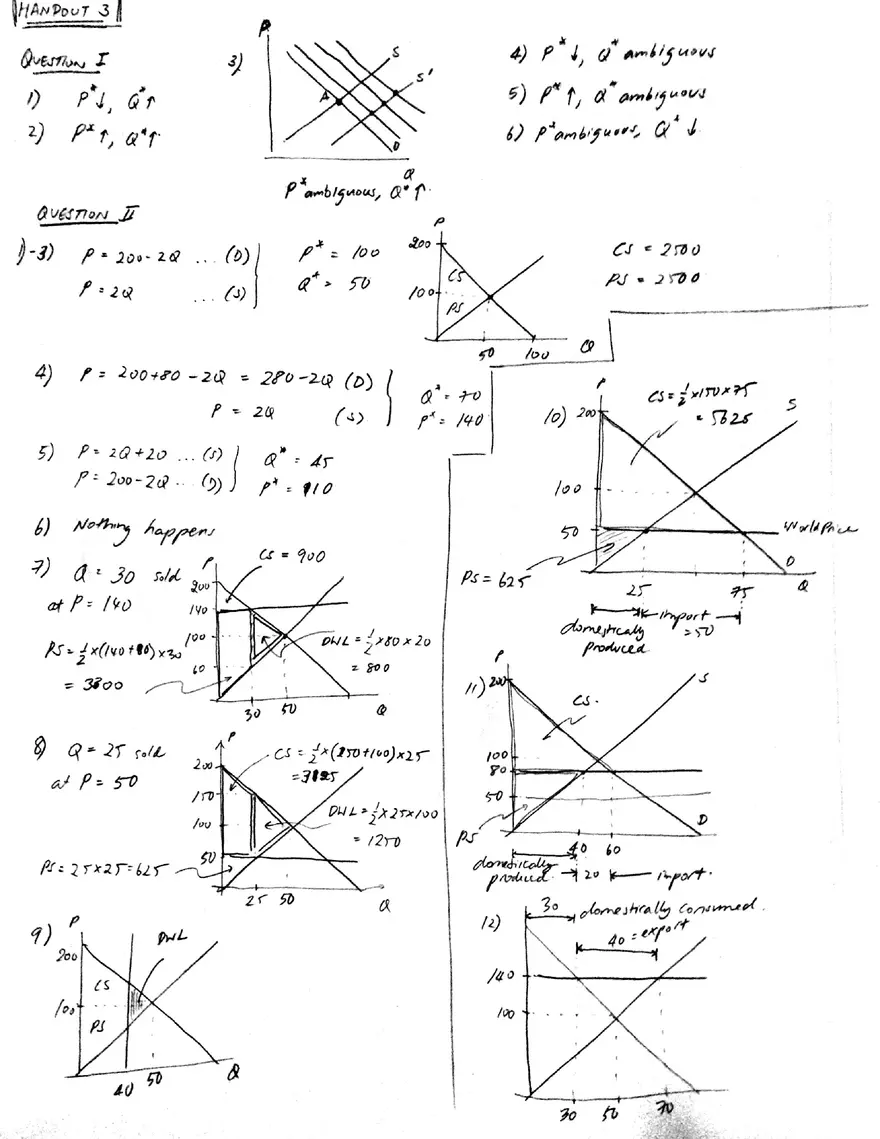 HANDOUT 3
QUESTION I
1) P* ↓, Q* ↑
2) P* ↑, Q* ↑
3)
P
S
S'
A
D
Q
P* ambiguous, Q* ↑.
4) P* ↓, Q* ambiguous
5) P* ↑, Q* ambiguous
6) P* ambiguous, Q* ↓
QUESTION II
1)-3) P = 200-2Q ... (D)
P = 2Q ... (S)
P* = 100
Q* = 50
P
200
CS
100
PS
50 100 Q
CS = 2500
PS = 2500
4) P = 200+80-2Q = 280-2Q (D)
P = 2Q (S)
Q* = 70
P* = 140
5) P = 2Q+20 ... (S)
P = 200-2Q ... (D)
Q* = 45
P* = 110
6) Nothing happens
7) Q = 30 sold
at P = 140
PS = 1/2 × (140+80) × 30
= 3300
P
CS = 900
200
140
100
60
DWL = 1/2 × 80 × 20
= 800
30 50 Q
8) Q = 25 sold
at P = 50
PS = 25×25 = 625
P
200
150
100
50
CS = 1/2 × (150+100) × 25
= 3125
DWL = 1/2 × 25 × 100
= 1250
25 50 Q
9)
P
DWL
200
CS
100
PS
40 50 Q
10)
P
CS = 1/2 × 150 × 75
= 5625
S
200
100
50
World Price
D
PS = 625
25 75 Q
import
= 50
domestically
produced
11)
P
200
CS.
S
100
80
50
D
PS
40 60
domestically
produced
20
import.
12)
30
domestically consumed.
40 = export
140
100
30 50 70